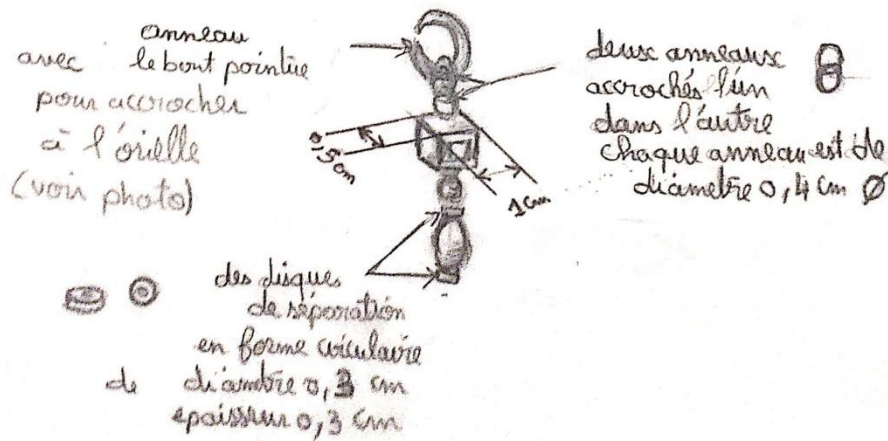 anneau
avec le bout pointue
pour accrocher
à l'orielle
(voir photo)
deux anneaux
accrochés l'un
dans l'autre
chaque anneau est de
diamètre 0,4 cm Ø
0,5 cm
1 cm
des disques
de séparation
en forme circulaire
de diambre 0,3 cm
epaisseur 0,3 cm